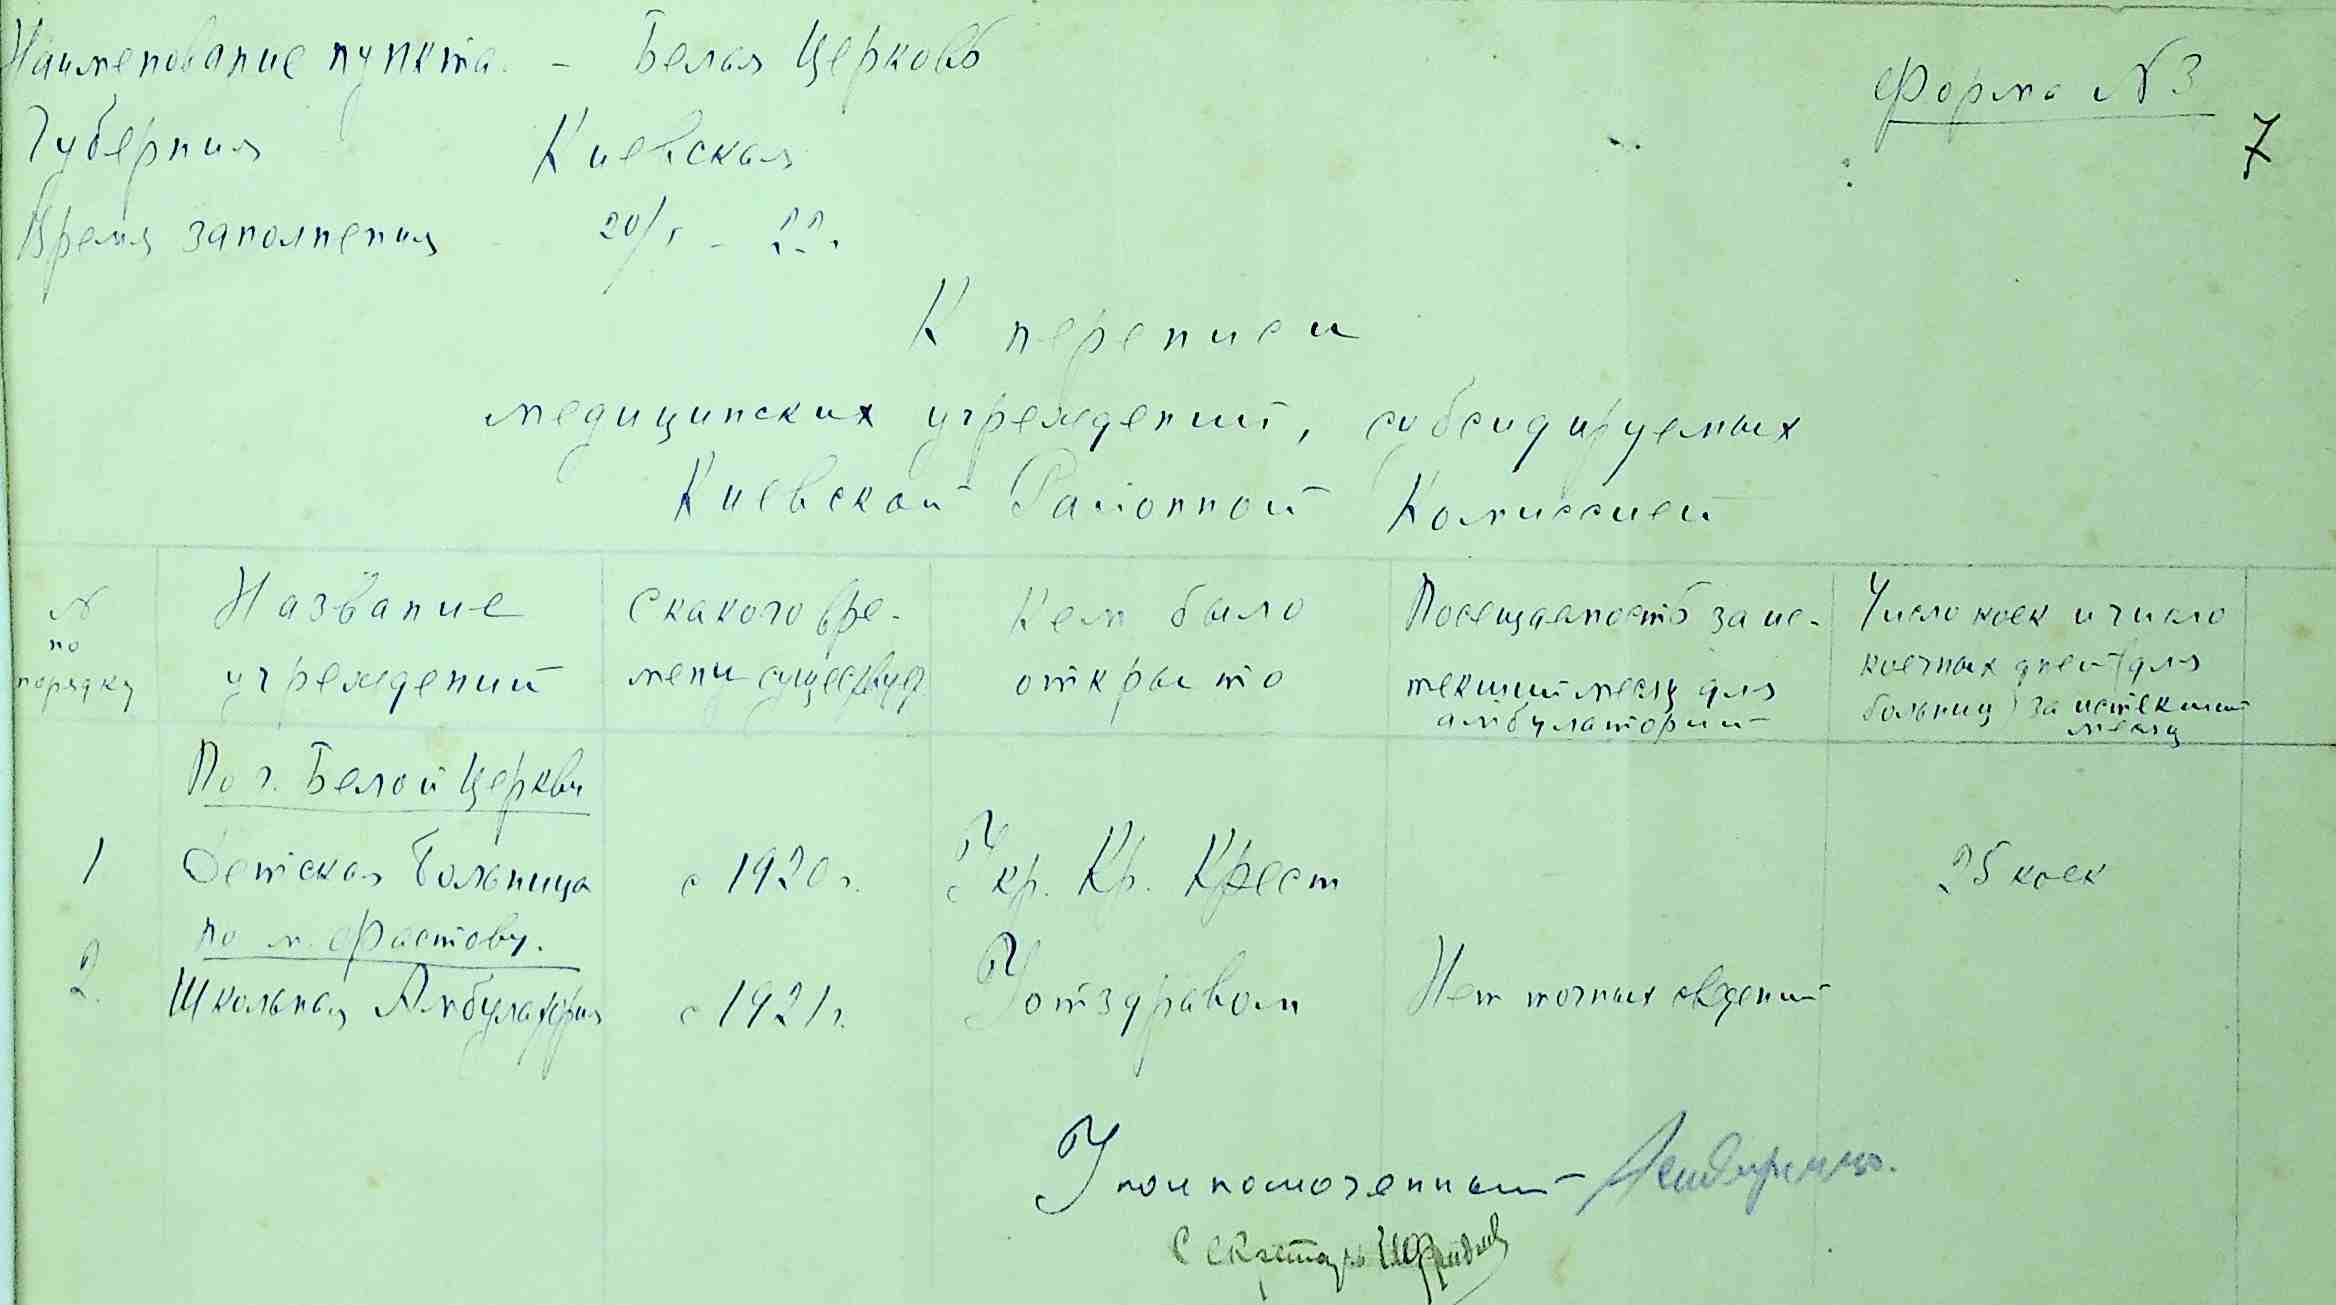 Наименование пункта - Белая Церковь
Форма N 3
7
Губерния Киевская
Время заполнения - 20/I - 22 г.
К переписи
медицинских учреждений, субсидируемых
Киевской Районной Комиссией
N по порядку
Название учреждений
С какого времени существует
Кем было открыто
Посещаемость за истекший месяц для амбулаторий
Число коек и число коечных дней (для больниц) за истекший месяц
По г. Белой Церкви
1 Детская Больница с 1920 г. Укр. Кр. Крест 25 коек
по м. Фастову.
2. Школьная Амбулатория с 1921 г. Уотздравом Нет точных сведений
Уполномоченный
Секретарь